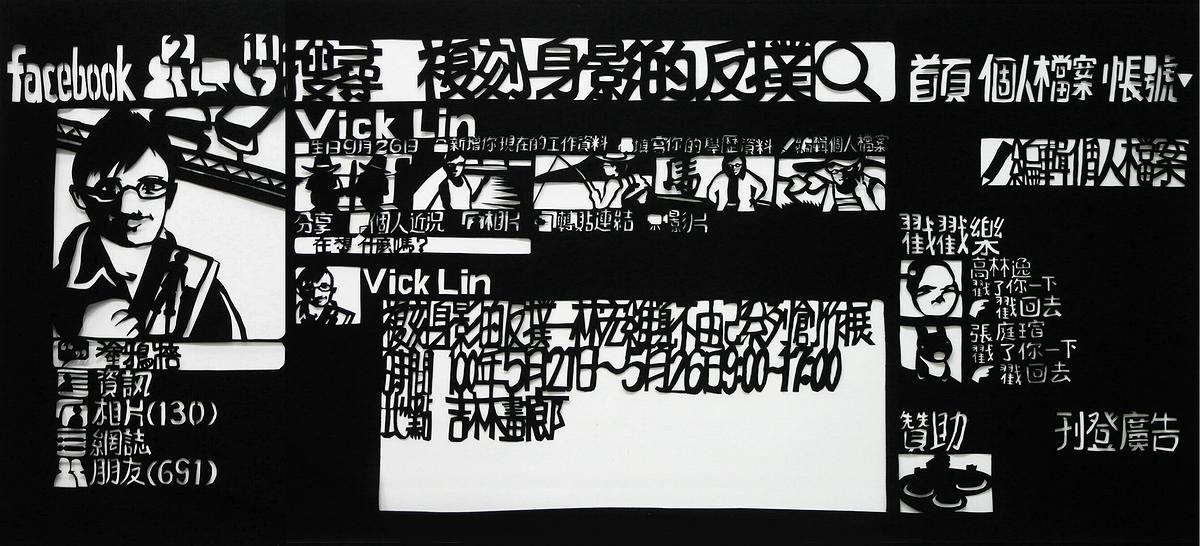 facebook 2 11 搜尋 複刻身影的反撲 首頁 個人檔案 帳號
Vick Lin
生日9月26日 新增你現在的工作資料 填寫你的學歷資料 編輯個人檔案
編輯個人檔案
馬
分享 個人近況 相片 轉貼連結 影片
在想什麼嗎?
Vick Lin
複刻身影的反撲—林宏維身不由己系列創作展
時間 100年5月21日～5月26日9:00~17:00
地點 吉林畫廊
塗鴉牆
資訊
相片(130)
網誌
朋友(691)
戳戳樂
高林逸
戳了你一下
戳回去
張庭瑄
戳了你一下
戳回去
贊助 刊登廣告